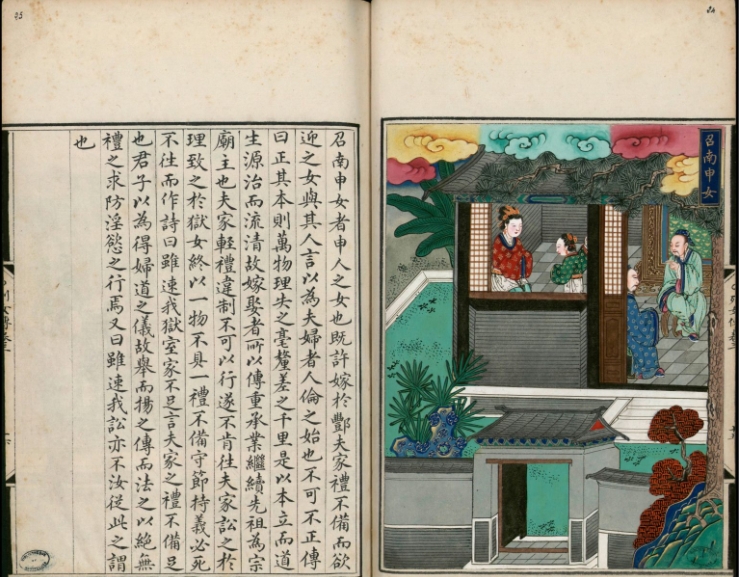 24
召南申女
召南申女者申人之女也既許嫁於酆夫家禮不備而欲
迎之女與其人言以為夫婦者人倫之始也不可不正傳
曰正其本則萬物理失之毫釐差之千里是以本立而道
生源治而流清故嫁娶者所以傳重承業繼續先祖為宗
廟主也夫家輕禮違制不可以行遂不肯往夫家訟之於
理致之於獄女終以一物不具一禮不備守節持義必死
不往而作詩曰雖速我獄室家不足言夫家之禮不備足
也君子以為得婦道之儀故舉而揚之傳而法之以絕無
禮之求防淫慾之行焉又曰雖速我訟亦不汝從此之謂
也
25